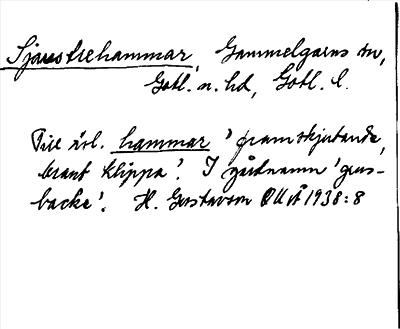 Sjaustrehammar, Gammelgarns sn,
Gotl. n. hd, Gotl. l.
Till isl. hammar 'framskjutande,
brant klippa'. I gårdnamn 'grus-
backe'. H. Gustavson OUÅ 1938:8